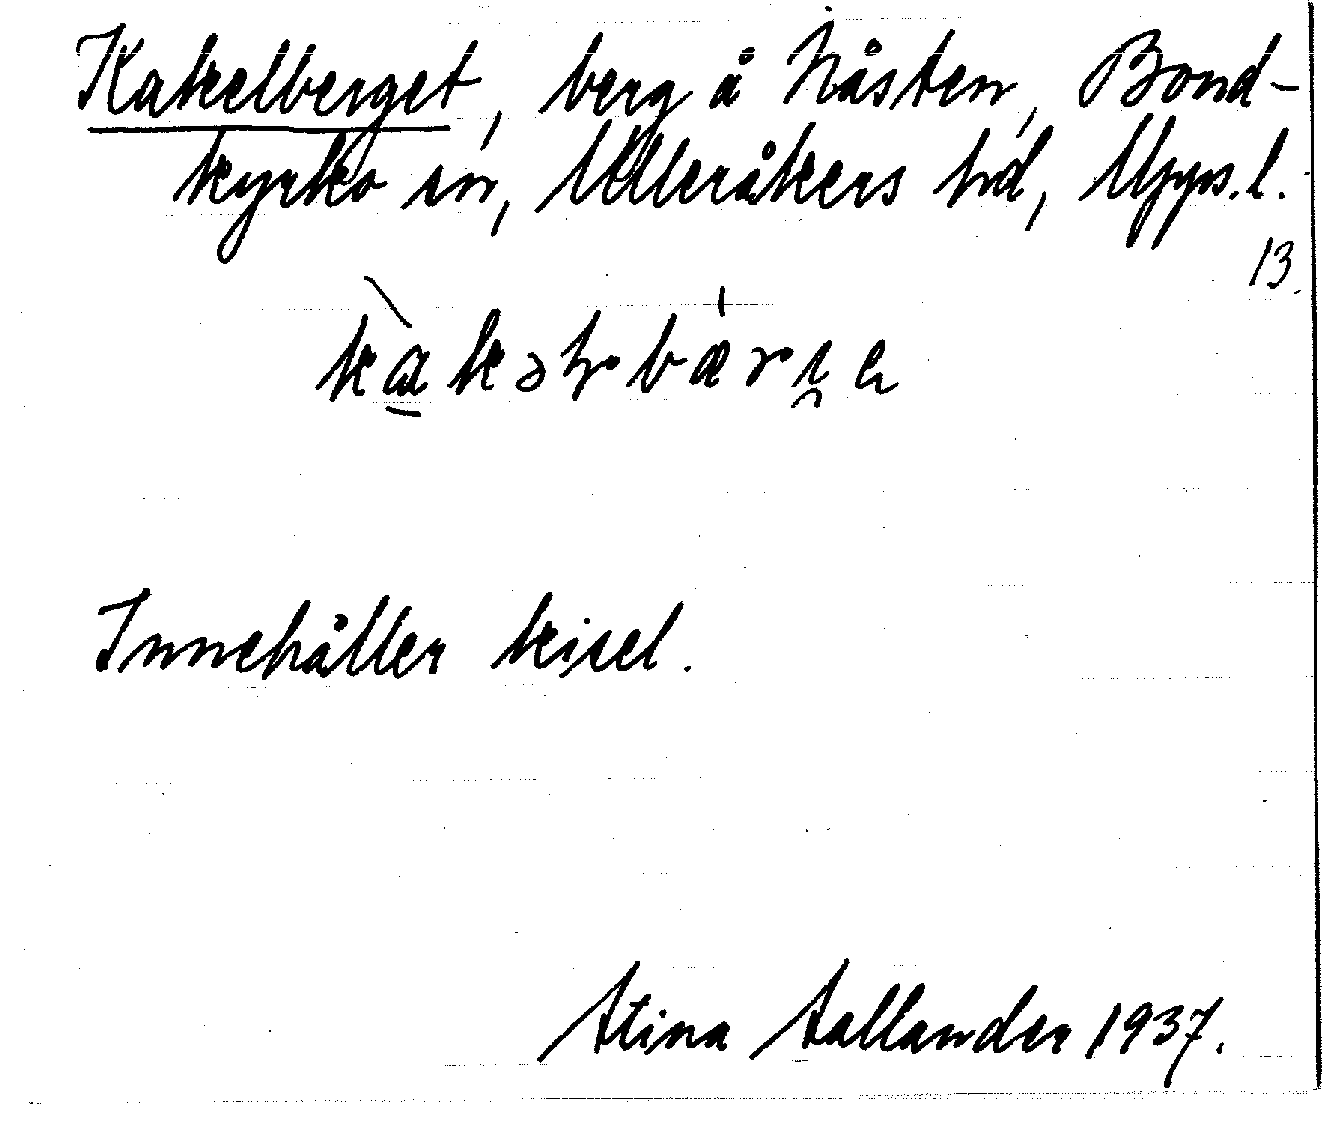 Kakelberget, berg å Nåsten, Bond-
kyrko sn, Ulleråkers hd, Upps.l.
13.
Innehåller kisel.
Stina Sallander 1937.